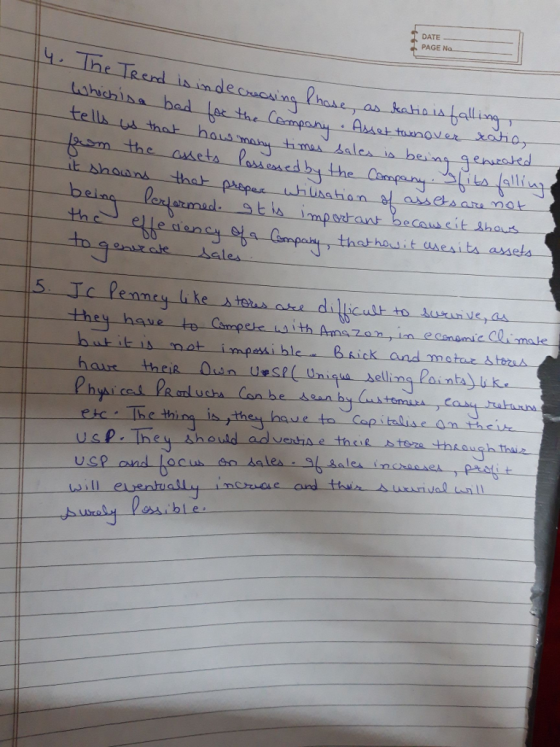 DATE
PAGE No.
4. The Trend is in decreasing Phase, as ratio is falling,
which is a bad for the Company. Asset turnover ratio,
tells us that how many times sales is being generated
from the assets Possessed by the Company. If its falling
it shows that proper utilisation of assets are not
being Performed. It is important because it shows
the effeciency of a Company, that how it uses its assets
to generate sales.
5. JC Penney like stores are difficult to survive, as
they have to Compete with Amazon, in economic Climate
but it is not impossible. Brick and motar stores
have their Own USP (Unique selling Points) like
Physical Products Can be seen by Customers, easy returns
etc. The thing is, they have to Capitalise on their
USP. They should advertise their store through their
USP and focus on sales. If sales increases, profit
will eventually increase and their survival will
surely Possible.